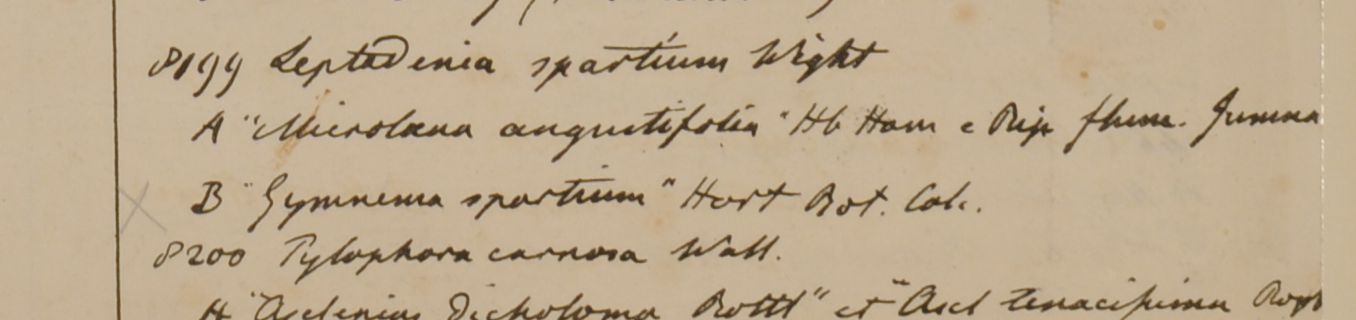 8199 Leptadenia spartium Wight
A "Microlæna angustifolia" Hb Ham e Rip flum. Jumna
B "Gymnema spartium" Hort Bot. Calc.
8200 Tylophora carnosa Wall.
A "Asclepias dichotoma Rottl" et "Ascl tenacissima Roxb